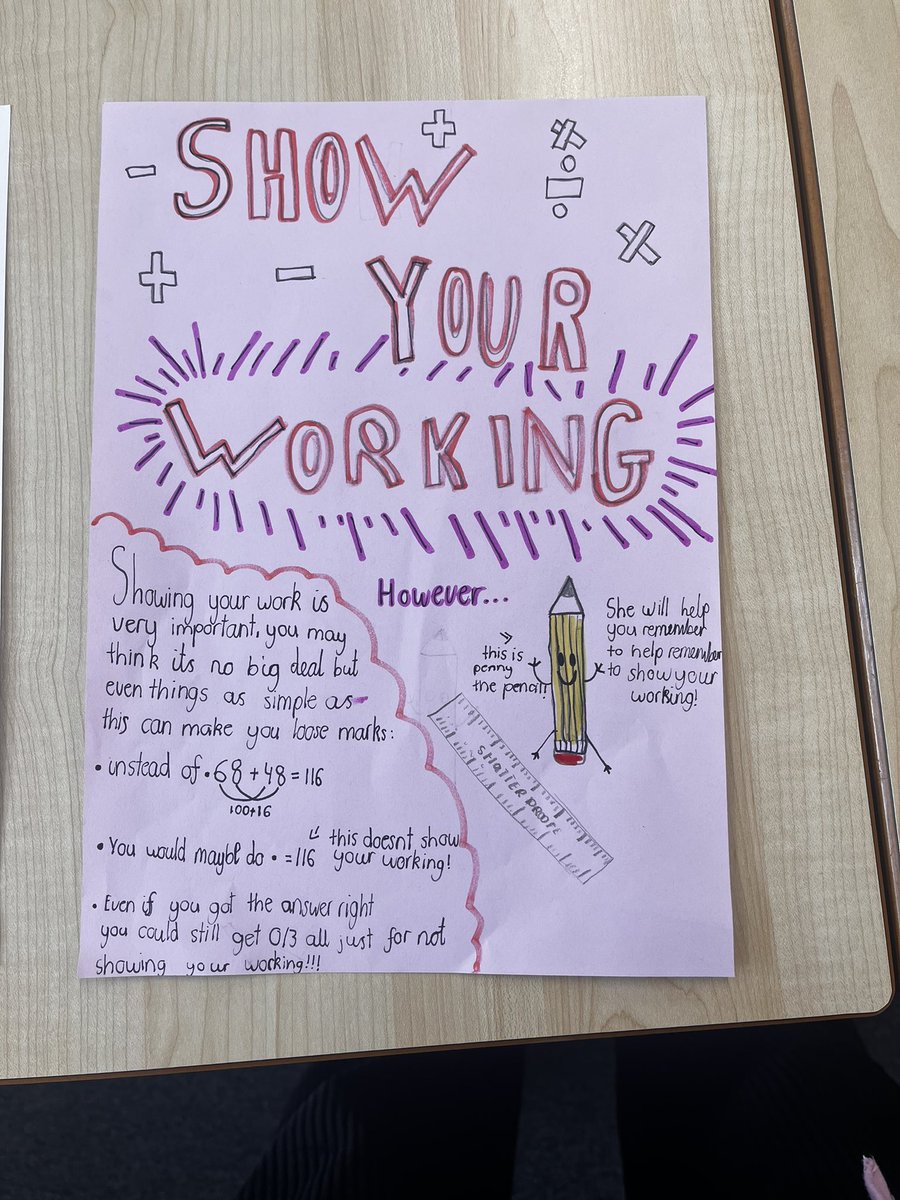 SHOW
YOUR
WORKING
Showing your work is
very important, you may
think its no big deal but
even things as simple as
this can make you loose marks:
• instead of • 68 + 48 = 116
100+16
• You would maybe do • = 116
this doesnt show
your working!
• Even if you got the answer right
you could still get 0/3 all just for not
showing your working!!!
However...
this is
penny
the pencil
She will help
you remember
to help remember
to show your
working!
SHATTER PROOF